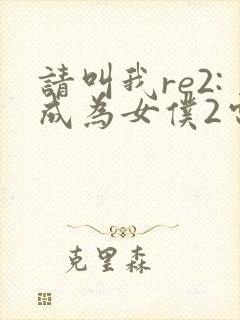 請叫我re2:
成為女僕2
克里森